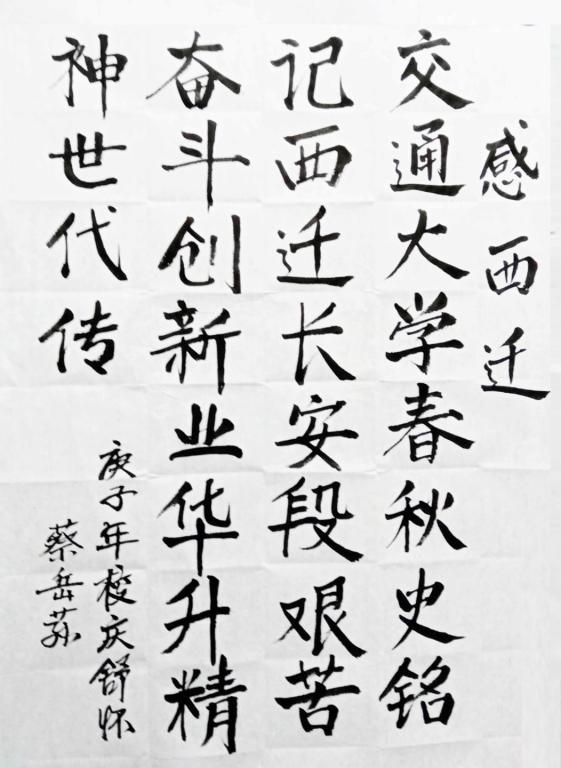 感西迁
交通大学春秋史铭
记西迁长安段艰苦
奋斗创新业华升精
神世代传
庚子年校庆舒怀
蔡岳荪